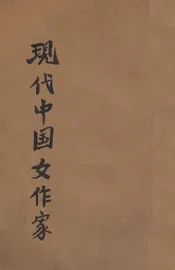 現代中国女作家